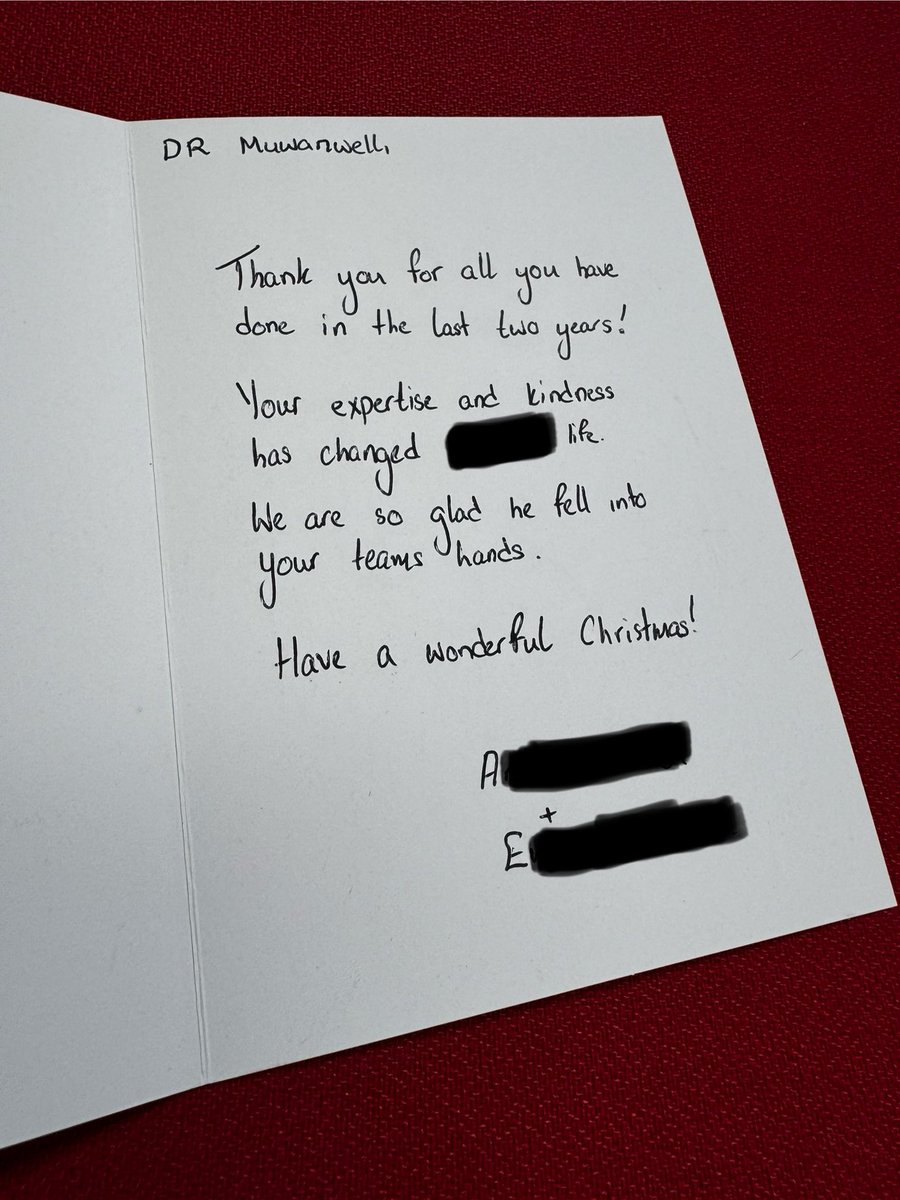 DR Muwanwell,
Thank you for all you have
done in the last two years!
Your expertise and kindness
has changed life.
We are so glad he fell into
your teams hands.
Have a wonderful Christmas!
A
+
E